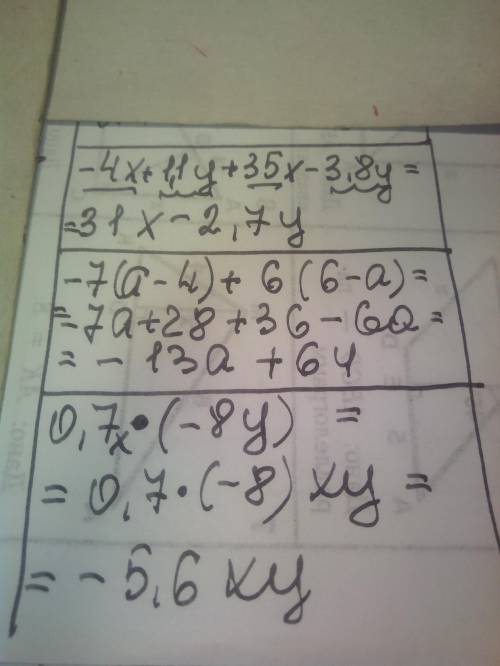 -4x+1,1y+35x-3,8y=
=31x-2,7y
-7(a-4)+6(6-a)=
=-7a+28+36-6a=
=-13a+64
0,7x•(-8y)=
=0,7•(-8)xy=
=-5,6xy